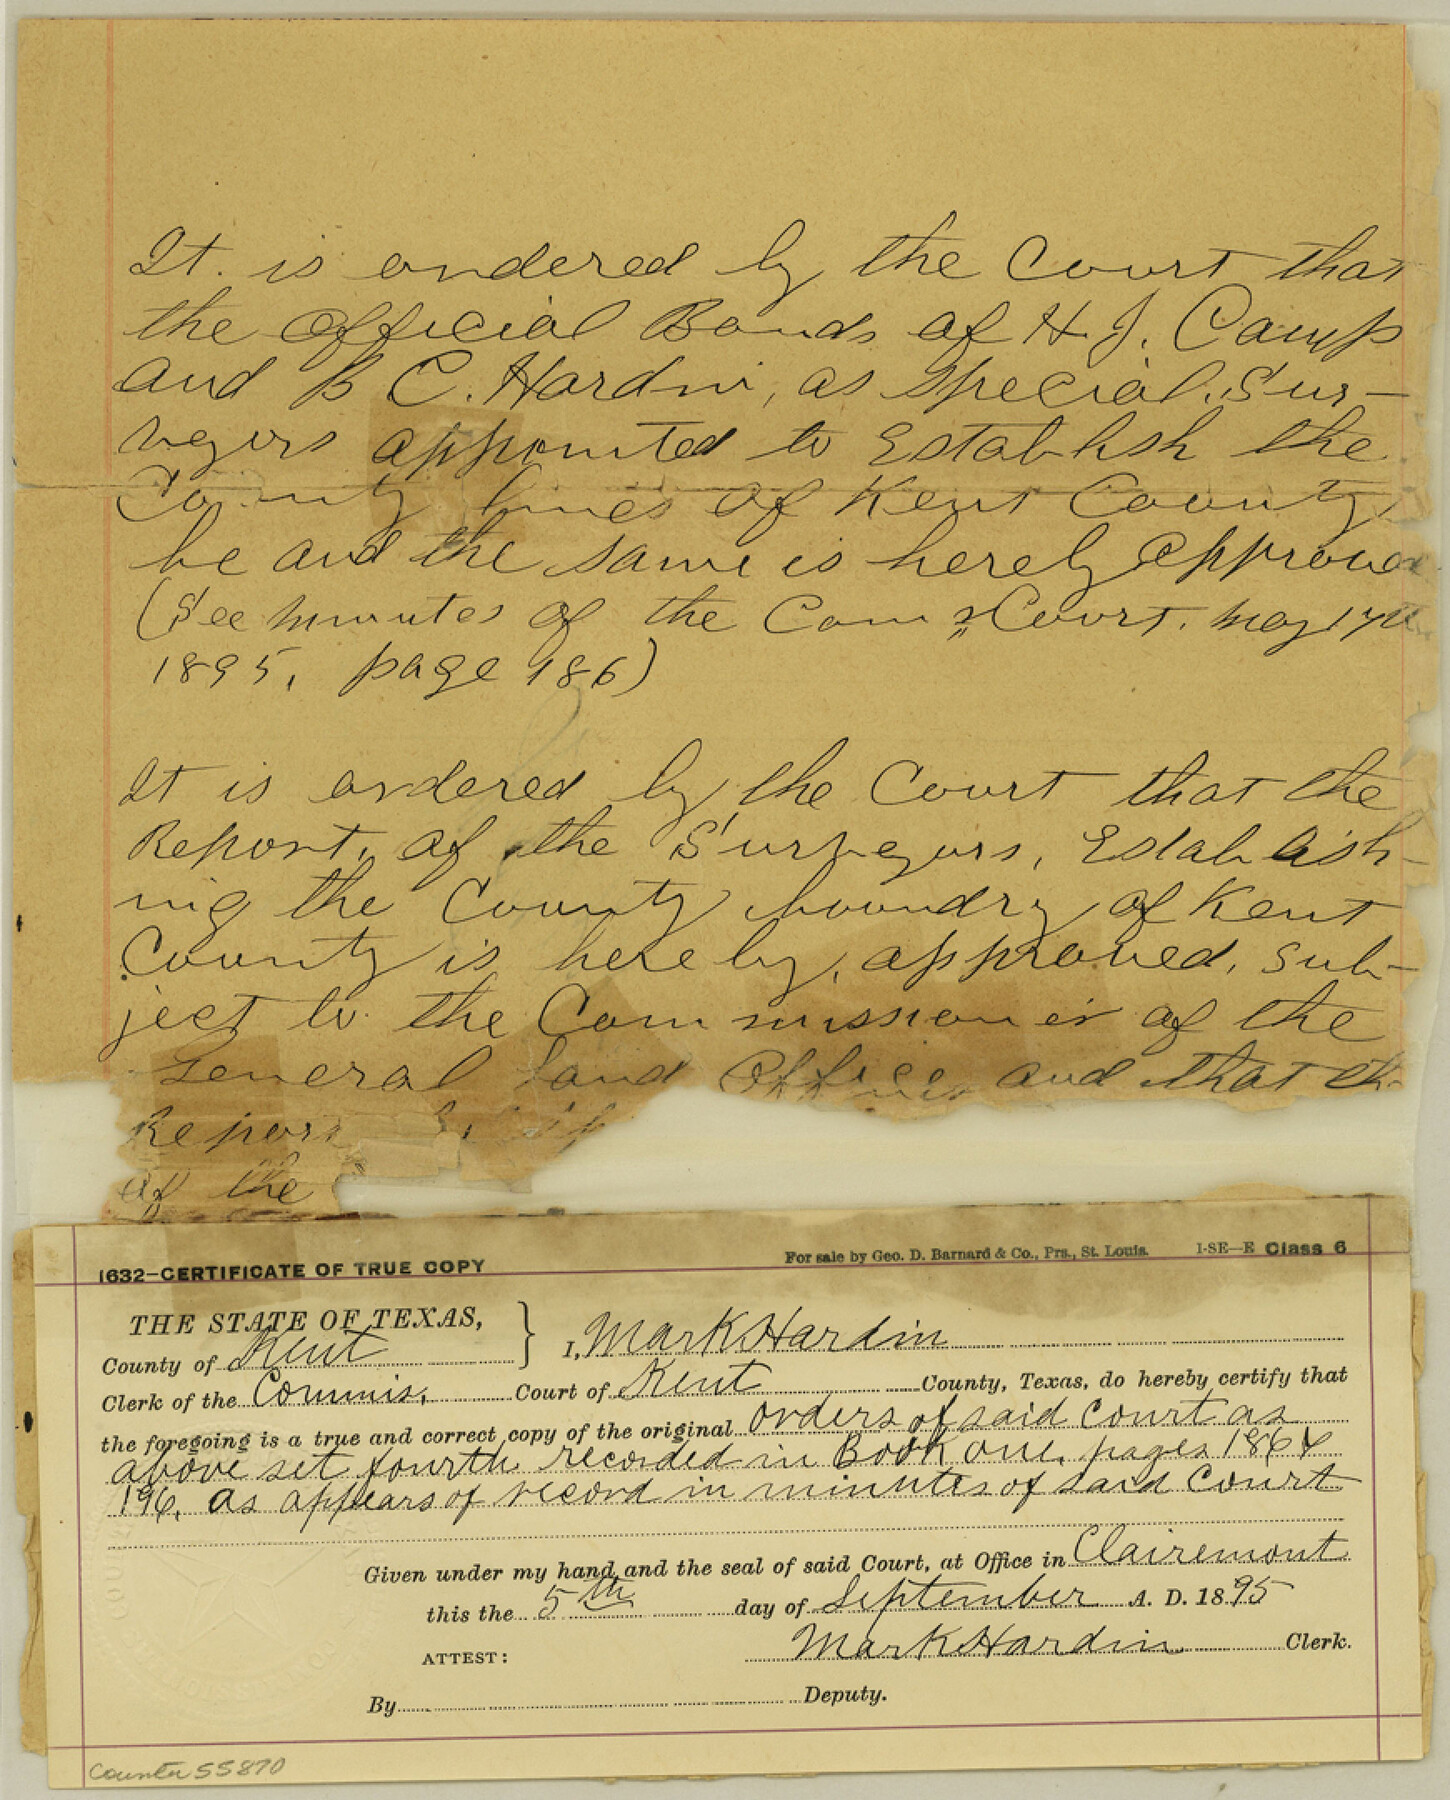 It. is ordered by the Court that
the official Bonds of H. J. Camp
and B C. Hardin, as special Sur-
veyors appointed to Establish the
County lines of Kent County
be and the same is hereby approved
(See minutes of the Com rs Court. May 17th
1895, page 186)
It is ordered by the Court that the
Report, of the Surveyors, Establish-
ing the County boundry of Kent
County is hereby, approved, sub-
ject to the Commissioner of the
General Land Office, and that th
Report
of the
1632-CERTIFICATE OF TRUE COPY For sale by Geo. D. Barnard & Co., Prs., St. Louis. I-SE-E Class 6
THE STATE OF TEXAS,
County of Kent } I, Mark Hardin
Clerk of the Commis, Court of Kent County, Texas, do hereby certify that
the foregoing is a true and correct copy of the original orders of said Court as
above set fourth recorded in Book one, pages 186 &
196, as appears of record in minutes of said Court
Given under my hand and the seal of said Court, at Office in Clairemont
this the 5th day of September A. D. 1895
Mark Hardin Clerk.
ATTEST:
By Deputy.
Counter 55870